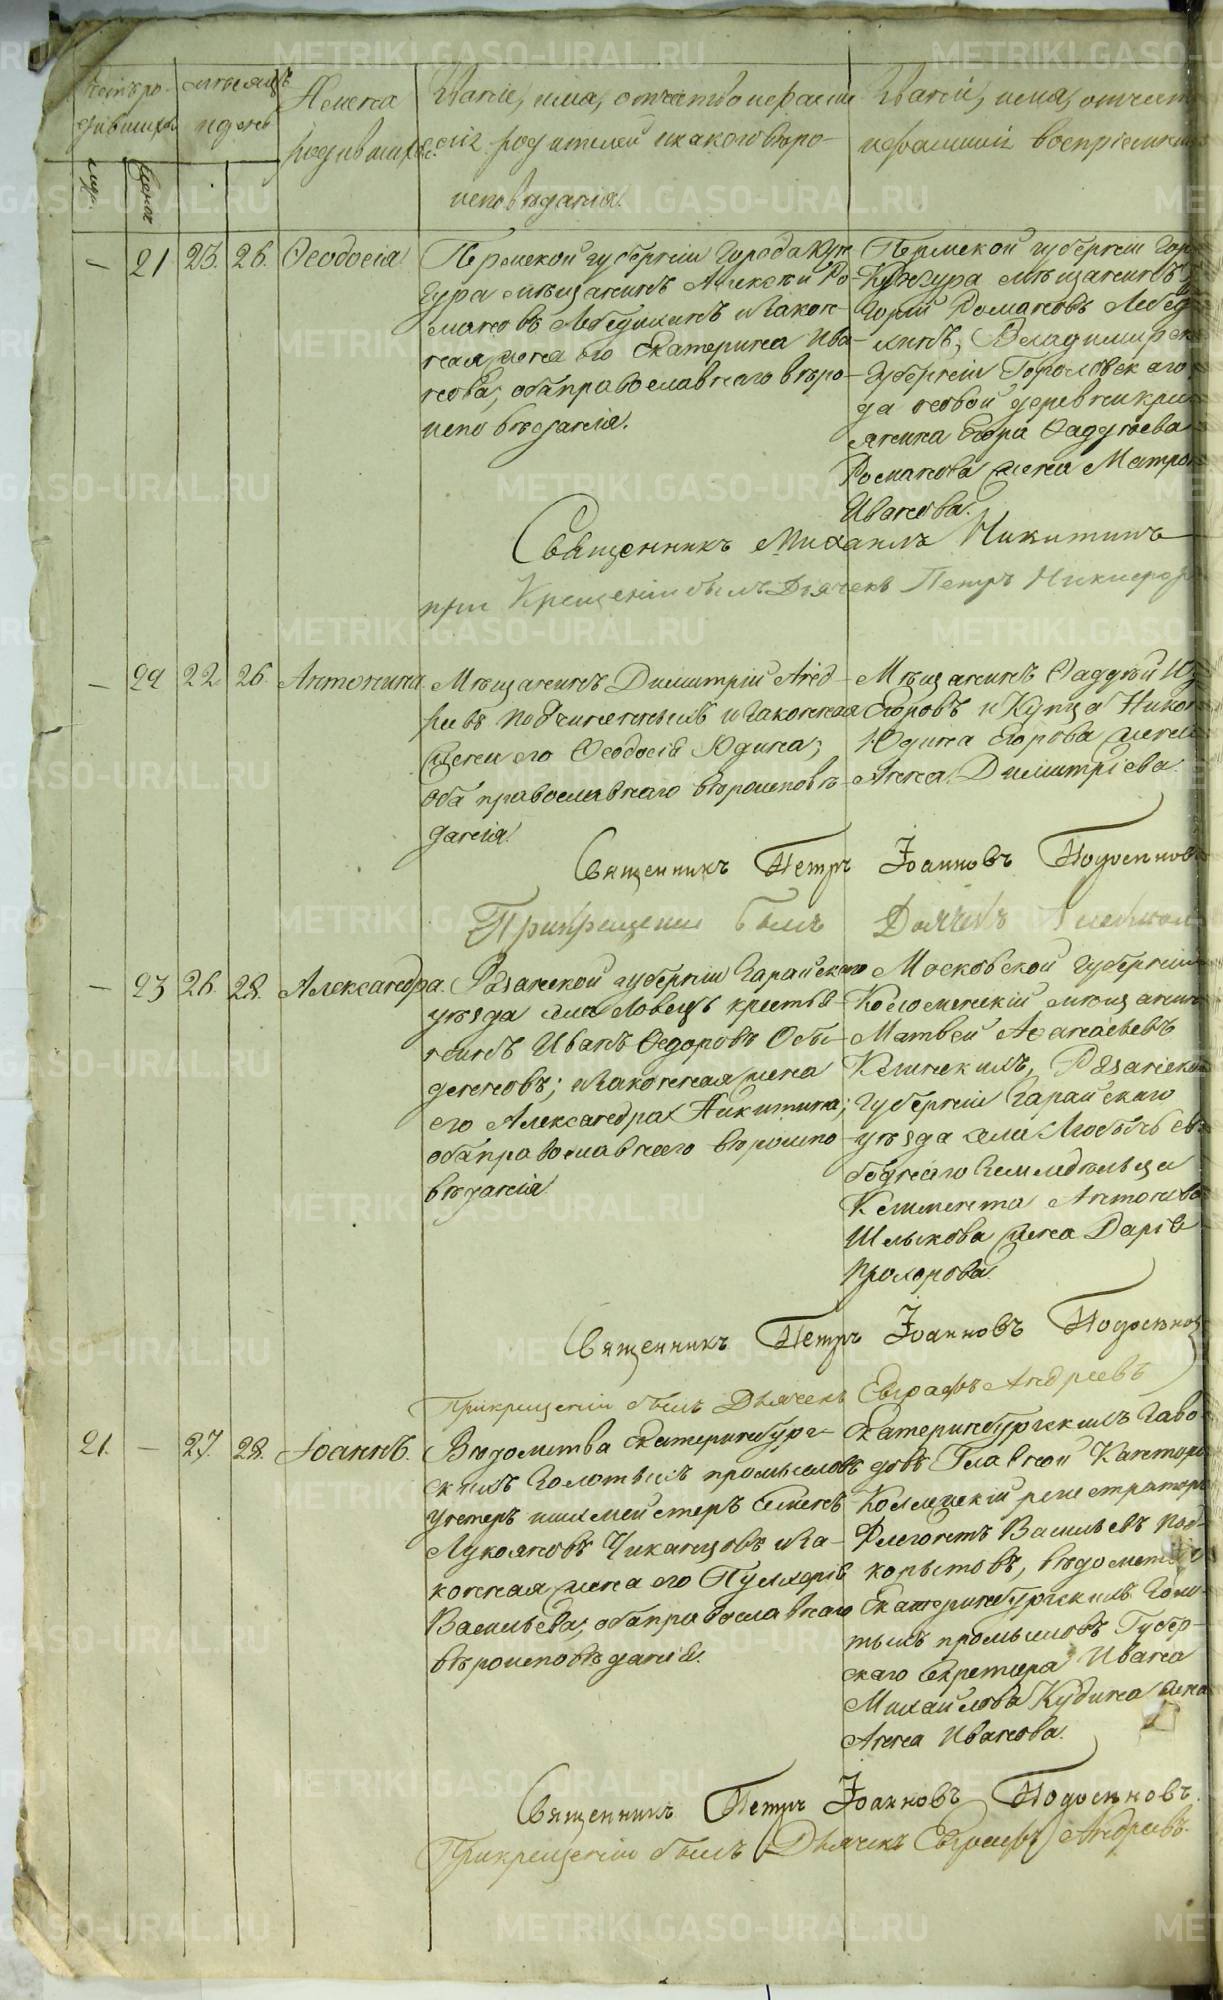 Счетъ ро-
дившихся
мѣсяцъ
и день
Имена
родившихся
Званіе, имя, отчество и фамилія
родителей и какого вѣро-
исповѣданія.
Званіе, имя, отчест
и фамилія воспріемник
муж.
женс.
— 21 25. 26. Ѳеодосія
Пермской губерніи города Кун-
гура мѣщанинъ Алексѣй Ро-
мановъ Лебедкинъ и закон-
ная жена его Екатерина Ива-
нова, оба православнаго вѣро-
исповѣданія.
Пермской губерніи гор
Кунгура мѣщанинъ
горій Романовъ Лебед
кинъ, Владимирск
губерніи Гороховскаго
да новой деревни кри
янина Егора Ѳаддѣева
Романова жена Матрон
Иванова.
Священникъ Михаилъ Никитинъ
при Крещеніи былъ Дьячекъ Петръ Никифоро
— 22 22 26. Антонина.
Мѣщанинъ Димитрій Анд-
реевъ Подчиненныхъ и законная
жена его Ѳеодосія Юдина;
оба православнаго вѣроисповѣ-
данія.
Мѣщанинъ Ѳаддѣй
Егоровъ и Купца Никол
Юдина Егорова жена
Анна Димитріева.
Священникъ Петръ Іоанновъ Подосеновъ
При крещеніи былъ Дьячекъ
— 23 26. 28. Александра.
Рязанской губерніи Зарайскаго
уѣзда села Ловецъ крестья-
нинъ Иванъ Ѳедоровъ Обы-
денновъ; и законная жена
его Александра Никитина;
оба православнаго вѣроиспо-
вѣданія
Московской губерніи
Коломенскій мѣщанин
Матвей Аѳанасьевъ
Клинскихъ, Рязанской
губерніи Зарайскаго
уѣзда села Любичь св
боднаго земледѣльца
Климента Антонова
Шлыкова жена Дарія
Прохорова.
Священникъ Петръ Іоанновъ Подосеновъ
При крещеніи былъ Дьячекъ Евграфъ Андреевъ
21. — 27. 28. Іоаннъ.
Вѣдомства Екатеринбург-
скихъ Золотыхъ промысловъ
унтеръ шихмейстеръ Семенъ
Лукояновъ Чиканцовъ и за-
конная жена его Пулхерія
Васильева, оба православнаго
вѣроисповѣданія.
Екатеринбургскихъ Заво-
довъ Главной Конторы
Коллежскій регистраторъ
Флегонтъ Васильевъ Под-
корытовъ, вѣдомства
Екатеринбургскихъ Золо-
тыхъ промысловъ Губер-
скаго Секретаря Ивана
Михайлова Кудина жена
Анна Иванова.
Священникъ Петръ Іоанновъ Подосеновъ.
При крещеніи былъ Дьячекъ Евграфъ Андреевъ.
METRIKI.GASO-URAL.RU